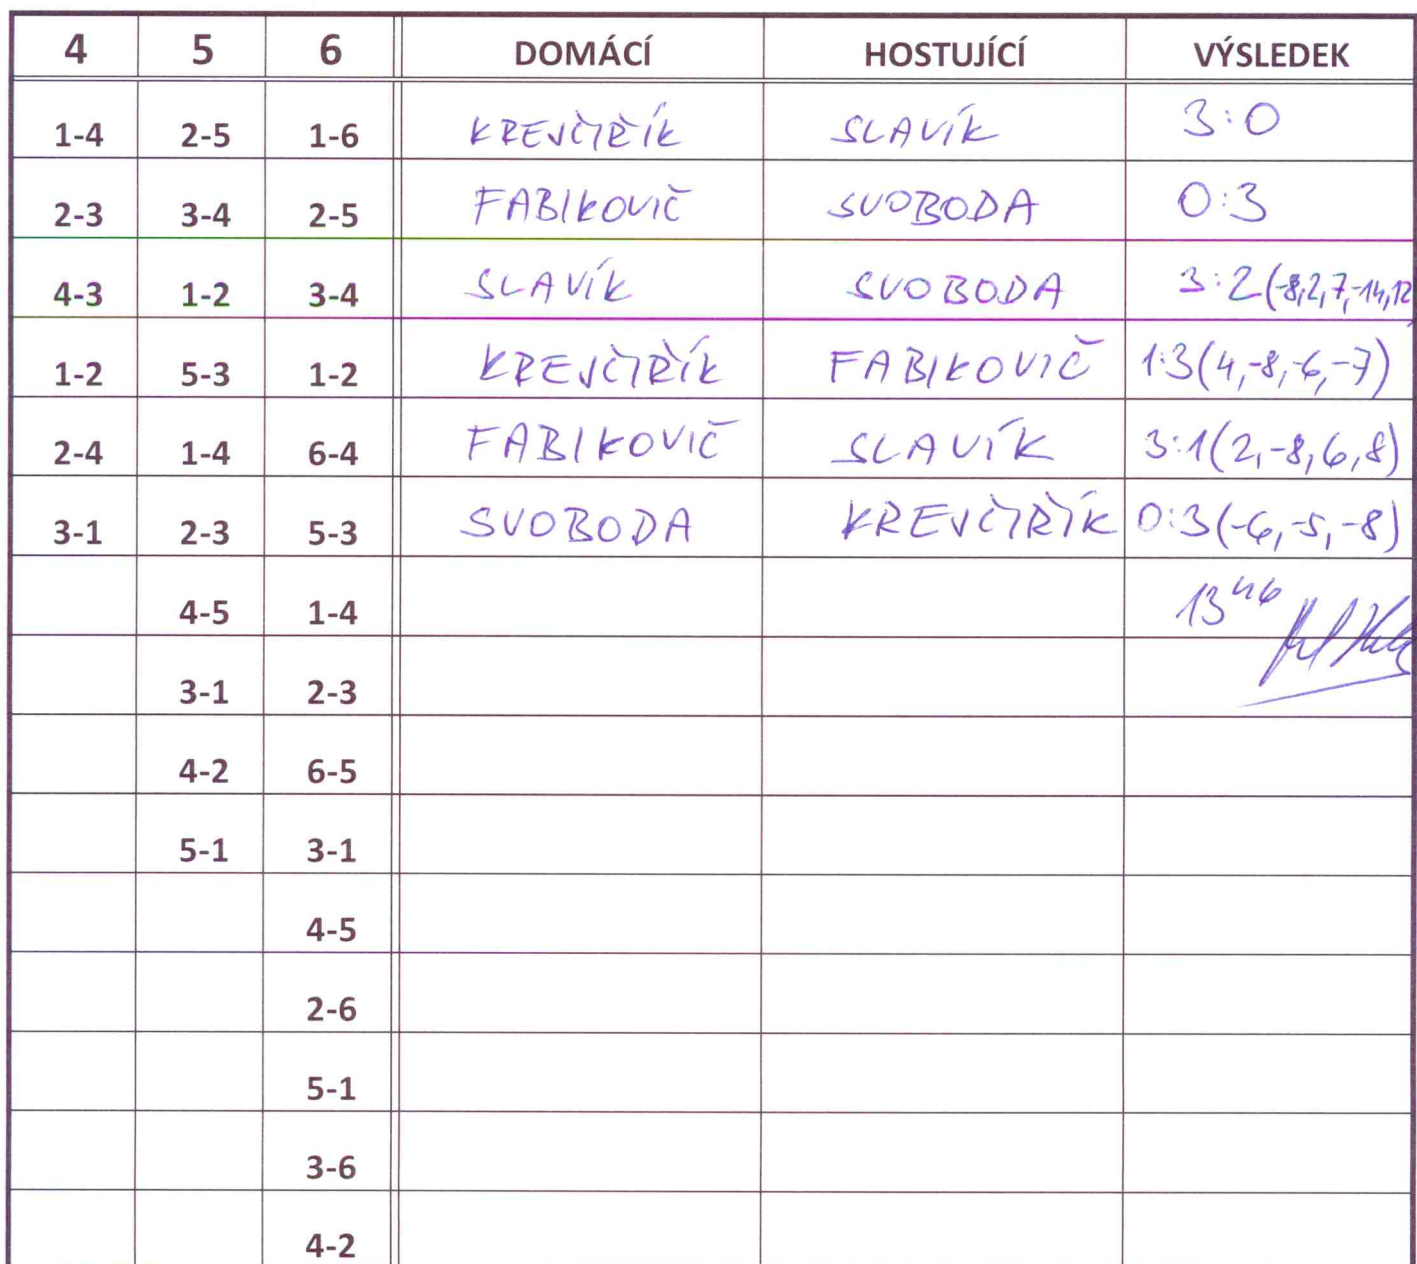 4 5 6 DOMÁCÍ HOSTUJÍCÍ VÝSLEDEK
1-4 2-5 1-6 KREJČIŘÍK SLAVÍK 3:0
2-3 3-4 2-5 FABIKOVIČ SVOBODA 0:3
4-3 1-2 3-4 SLAVÍK SVOBODA 3:2(-8,2,7,-14,12
1-2 5-3 1-2 KREJČIŘÍK FABIKOVIČ 1:3(4,-8,-6,-7)
2-4 1-4 6-4 FABIKOVIČ SLAVÍK 3:1(2,-8,6,8)
3-1 2-3 5-3 SVOBODA KREJČIŘÍK 0:3(-6,-5,-8)
4-5 1-4 13 46
3-1 2-3
4-2 6-5
5-1 3-1
4-5
2-6
5-1
3-6
4-2